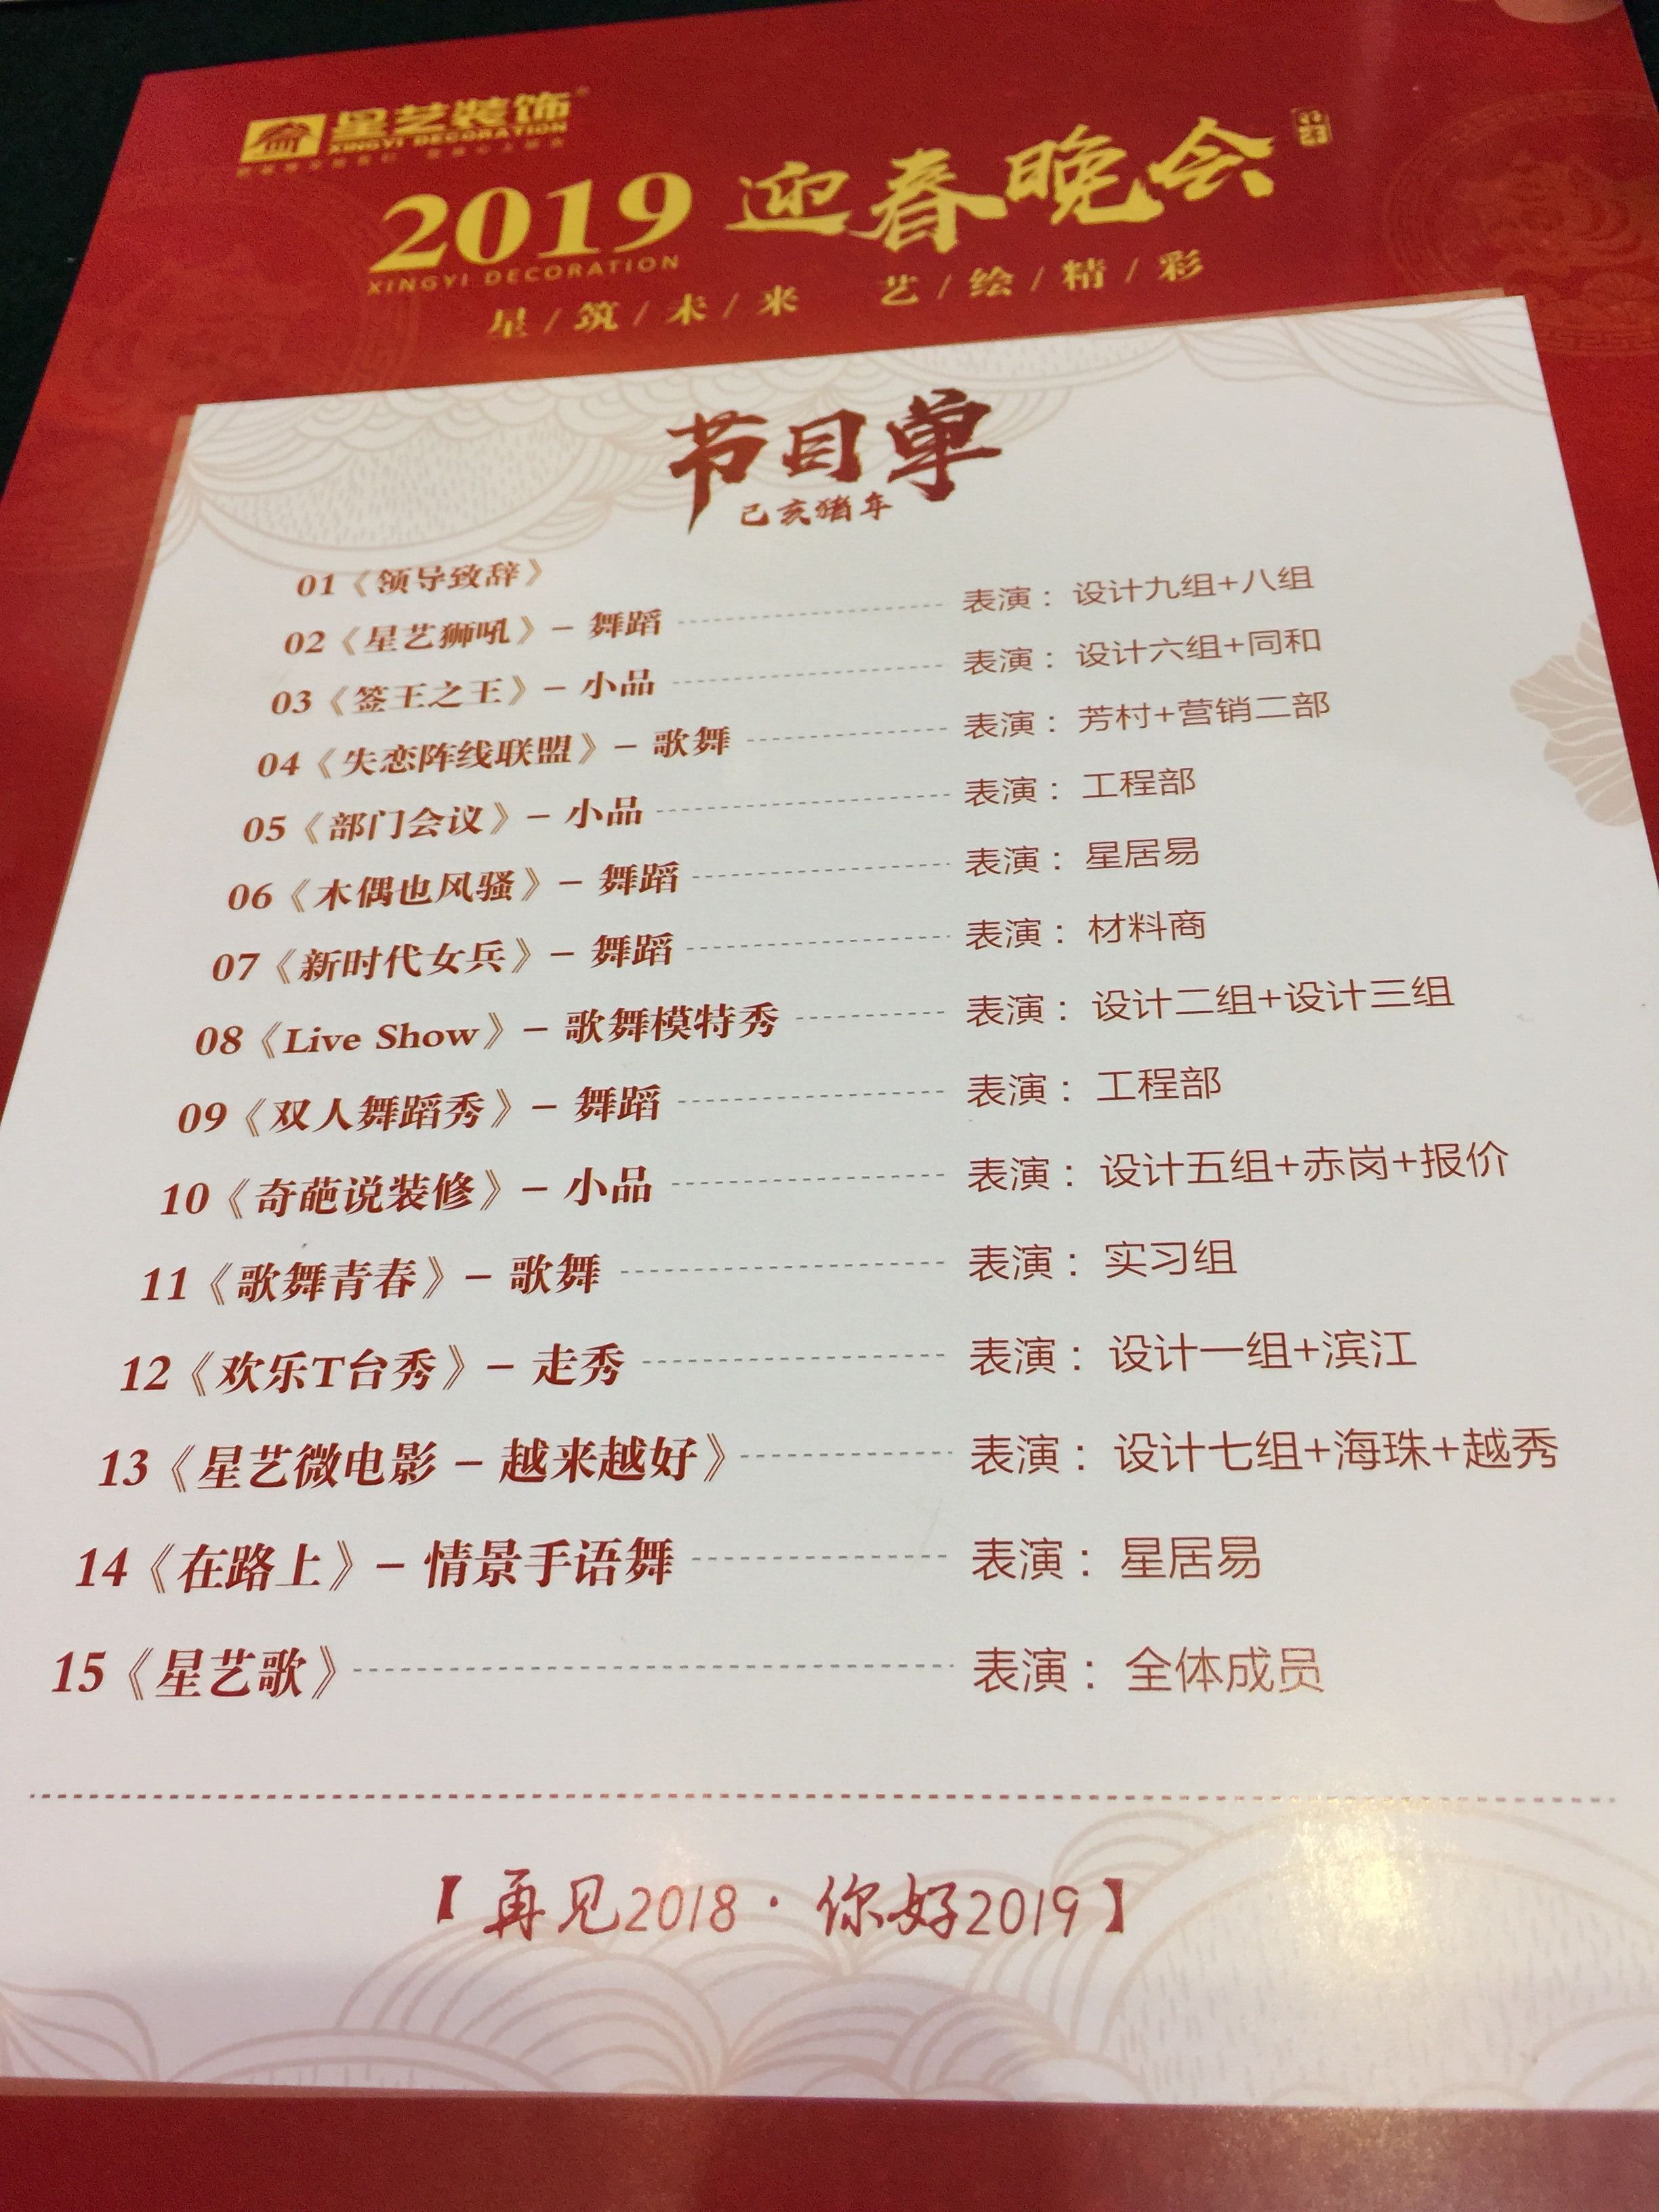 星艺装饰
XINGYI DECORATION
2019 迎春晚会
XINGYI DECORATION
星/筑/未/来 艺/绘/精/彩
节目单
己亥猪年
01《领导致辞》
02《星艺狮吼》- 舞蹈 表演：设计九组+八组
03《签王之王》- 小品 表演：设计六组+同和
04《失恋阵线联盟》- 歌舞 表演：芳村+营销二部
05《部门会议》- 小品 表演：工程部
06《木偶也风骚》- 舞蹈 表演：星居易
07《新时代女兵》- 舞蹈 表演：材料商
08《Live Show》- 歌舞模特秀 表演：设计二组+设计三组
09《双人舞蹈秀》- 舞蹈 表演：工程部
10《奇葩说装修》- 小品 表演：设计五组+赤岗+报价
11《歌舞青春》- 歌舞 表演：实习组
12《欢乐T台秀》- 走秀 表演：设计一组+滨江
13《星艺微电影 - 越来越好》 表演：设计七组+海珠+越秀
14《在路上》- 情景手语舞 表演：星居易
15《星艺歌》 表演：全体成员
【再见2018·你好2019】